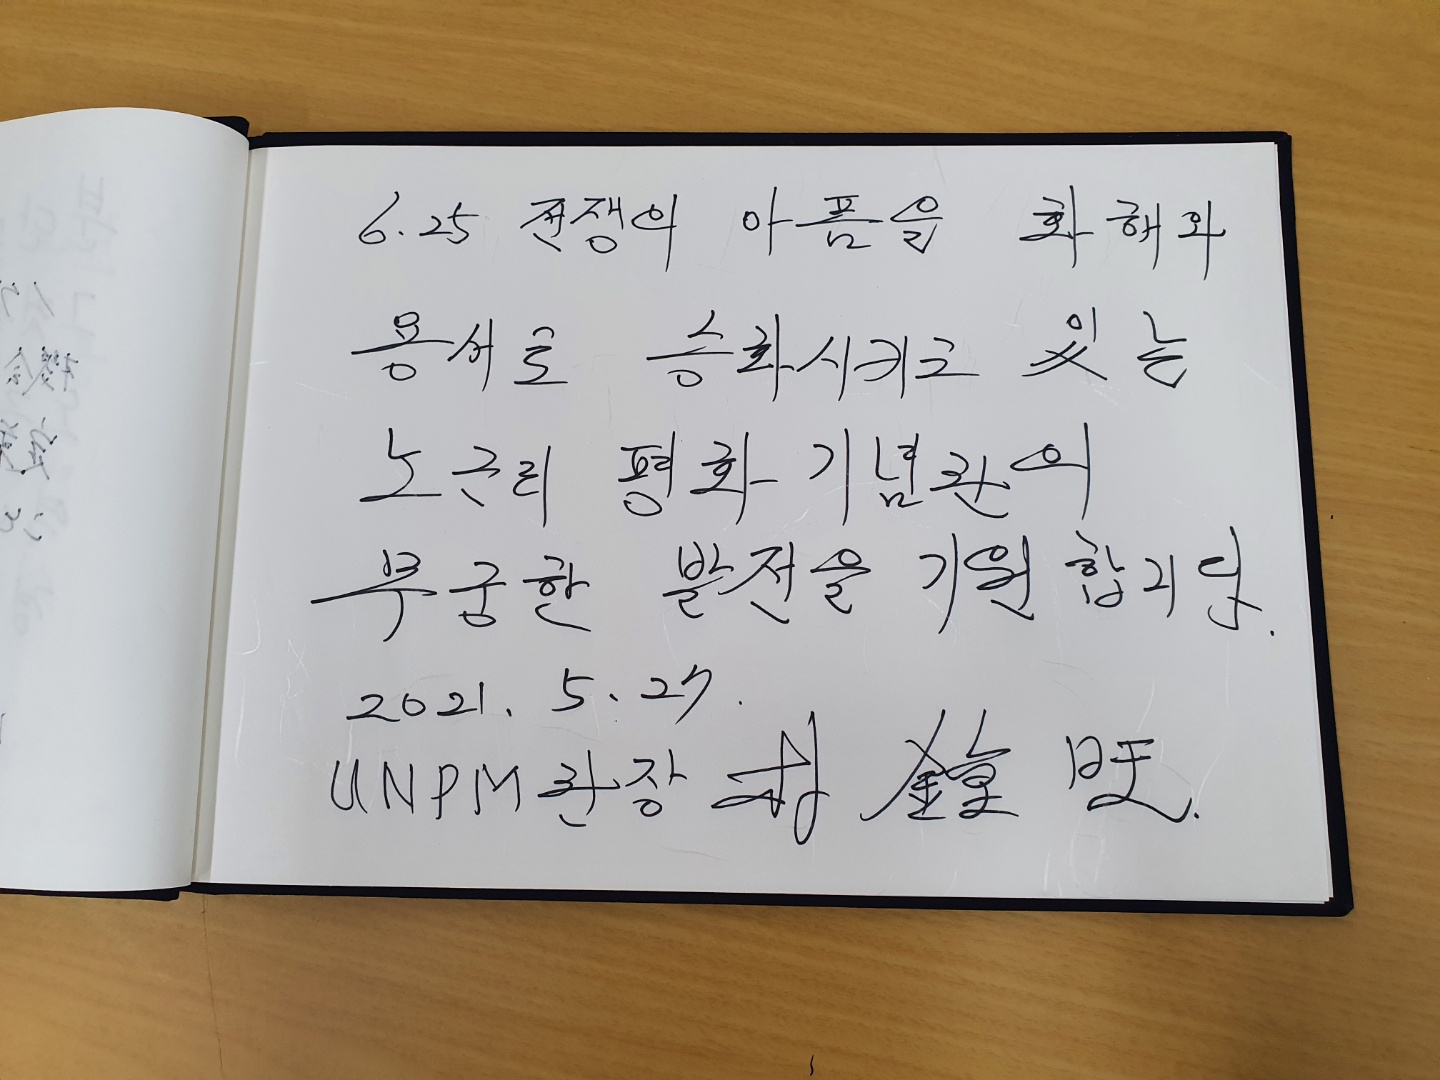 6.25 전쟁의 아픔을 화해와
용서로 승화시키고 있는
노근리 평화기념관의
무궁한 발전을 기원합니다.
2021. 5. 27.
UNPM관장 旺.